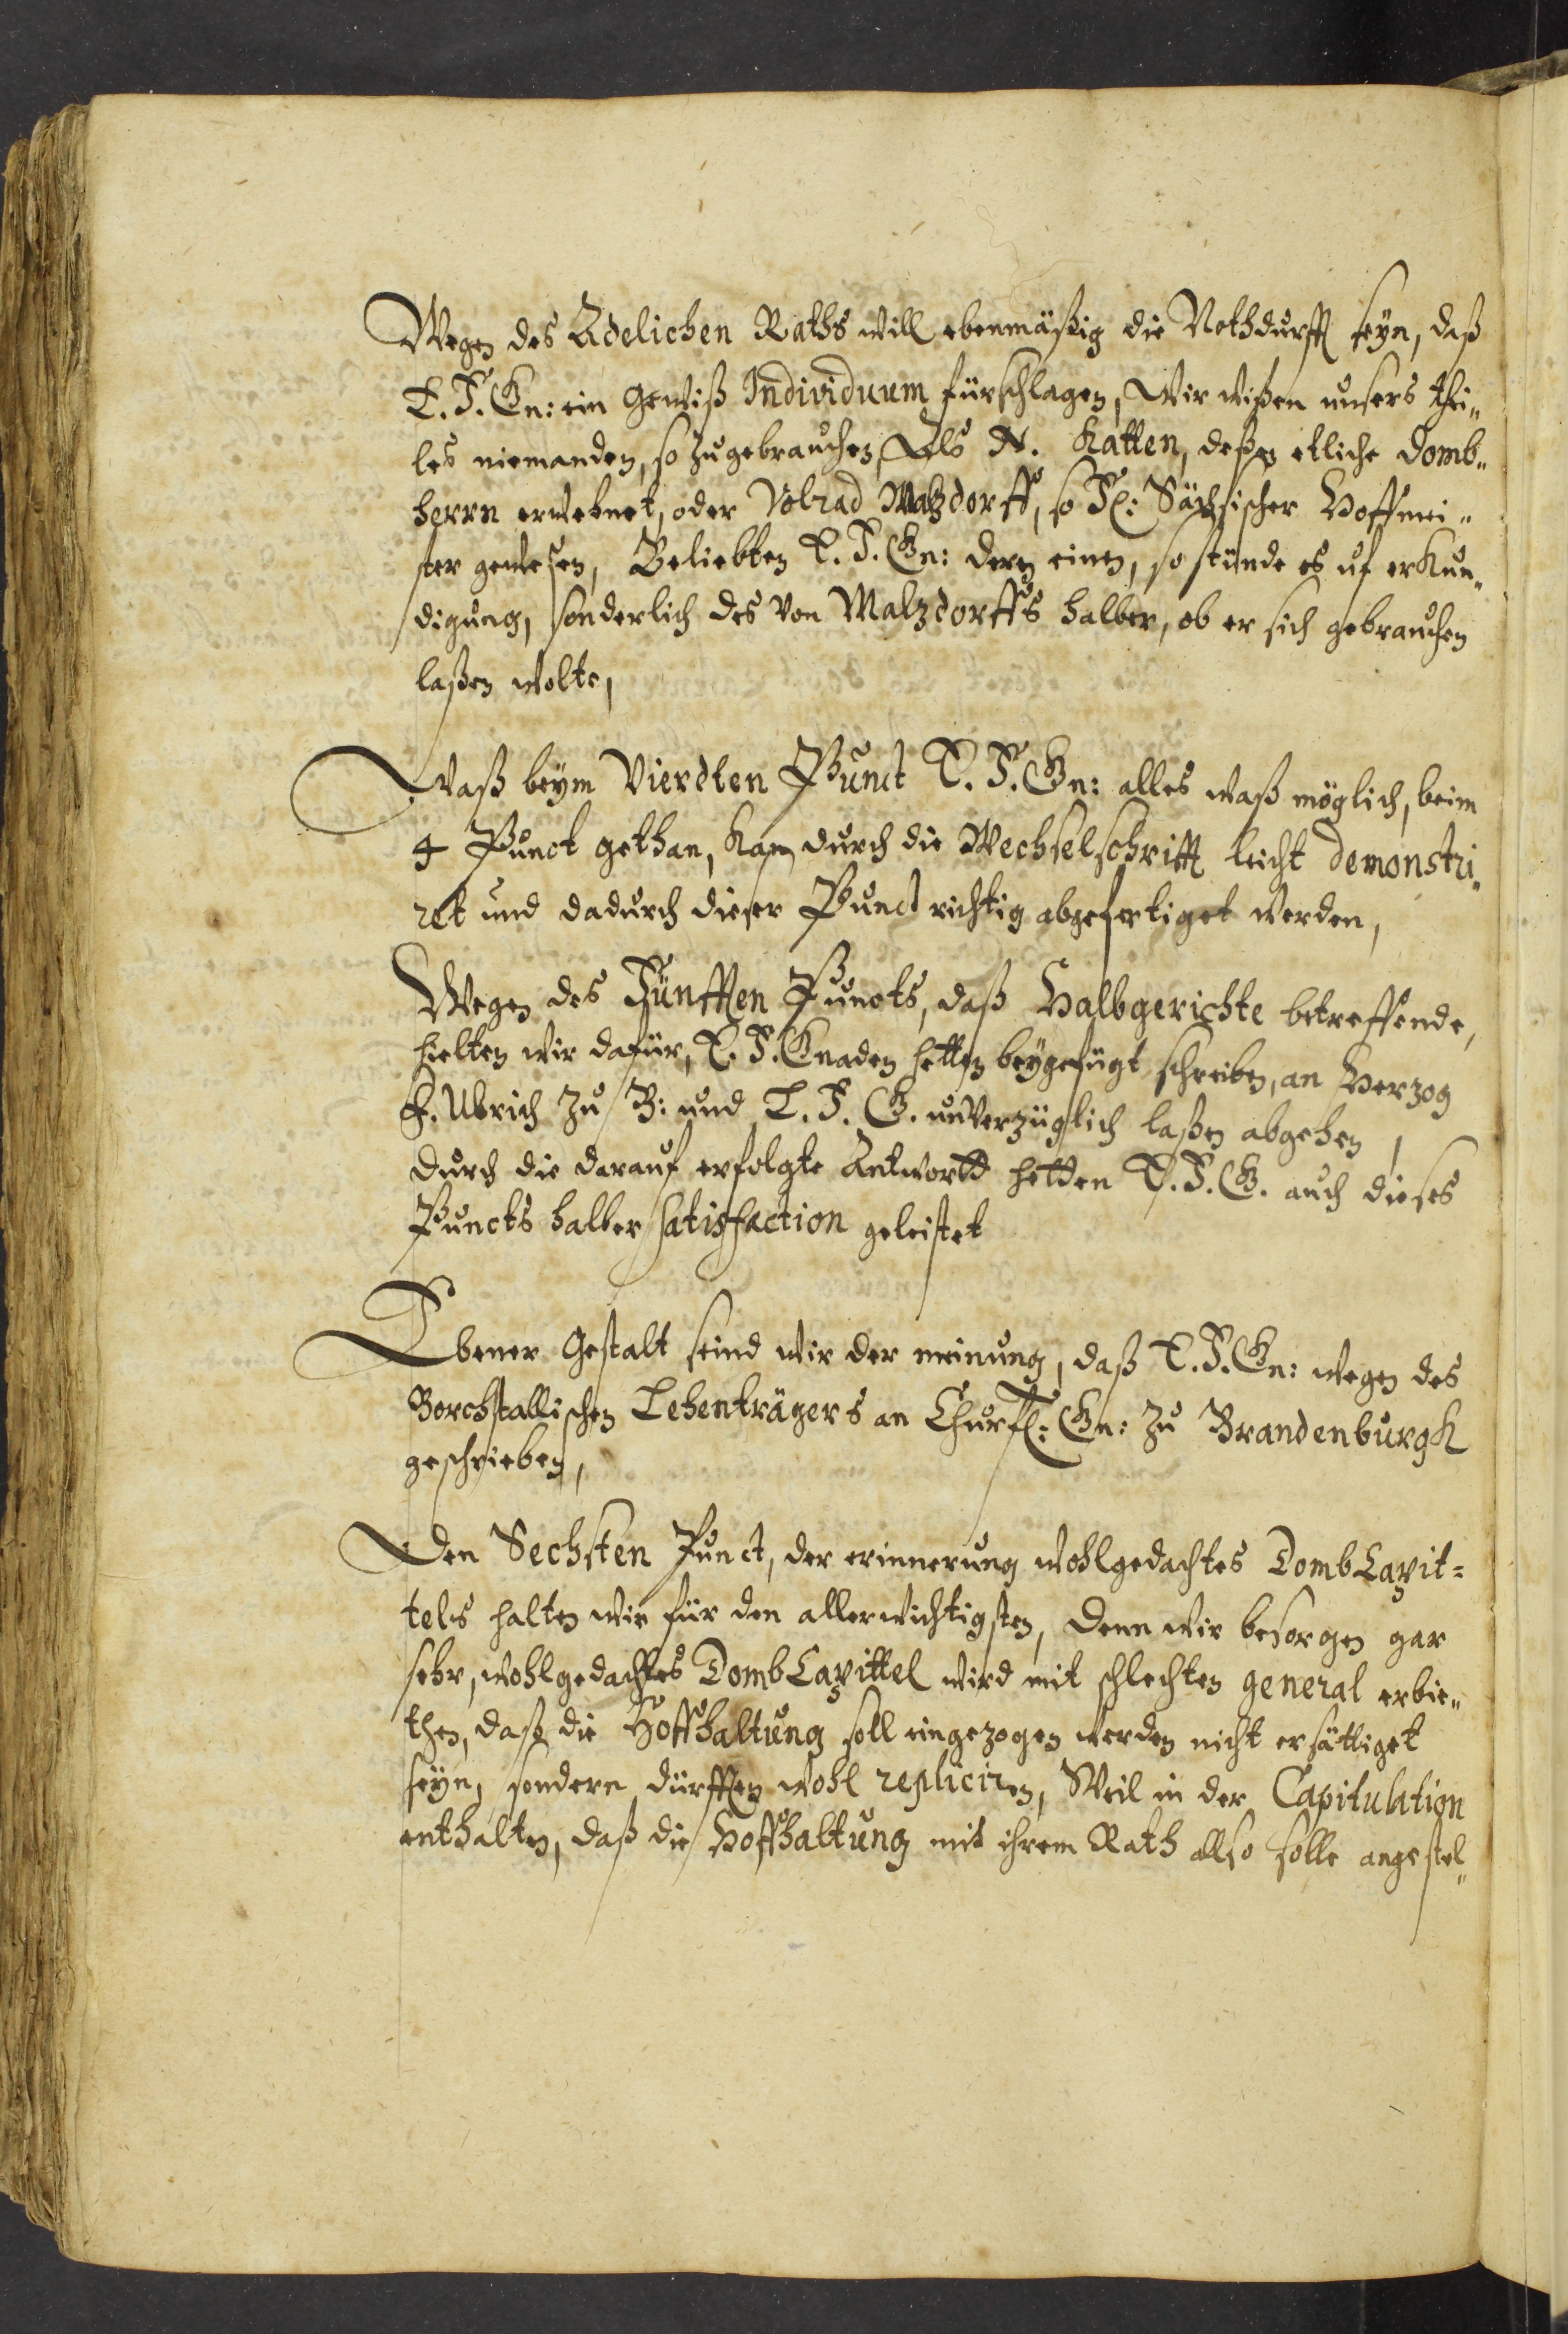 Wegen des Adelichen Raths will ebenmäßig die Nothdurfft seyn, daß
E. F. Gn: ein gewiß Individuum fürschlagen, Wir wißen unsers thei„
les niemanden, so zugebrauchen, Als N. Katten, deßen etliche Domb„
herrn erwehnet, oder Volrad Walzdorff, so Fl: Sächsischer Hoffmei„
ster gewesen, Beliebten E. F. Gn: dern einen, so stünde es uf erkun„
digung, sonderlich des von Walzdorffs halber, ob er sich gebrauchen
laßen wolte,
Waß beym Vierdten Punct E. F. Gn: alles waß möglich, beim
4 Punct gethan, kan durch die Wechselschrifft leicht demonstri„
ret und dadurch dieser Punct richtig abgefertiget werden,
Wegen des Fünfften Puncts, daß Halbgerichte betreffende,
hielten wir dafür, E. F. Gnaden hetten beygefügt schreiben, an Herzog
F. Ulrich zu B: und L. F. G. unverzüglich laßen abgehen,
durch die darauf erfolgte Antwortt hetten E. F. G. auch dieses
Puncts halber satisfaction geleistet
Ebener gestalt seind wir der meinung, daß E. F. Gn: wegen des
Borchstallischen Lehenträgers an Churfl: Gn: zu Brandenburgk
geschrieben,
Den Sechsten Punct, der erinnerung wohlgedachtes Domb Capit=
tels halten wir für den allerwichtigsten, denn wir besorgen gar
sehr, wohlgedachtes Domb Capittel wird mit schlechten general erbie„
then, daß die Hoffhaltung soll eingezogen werden nicht ersättiget
seyn, sondern dürfften wohl repliciren, Weil in der Capitulation
enthalten, daß die Hoffhaltung mit ihrem Rath also solle angestel„